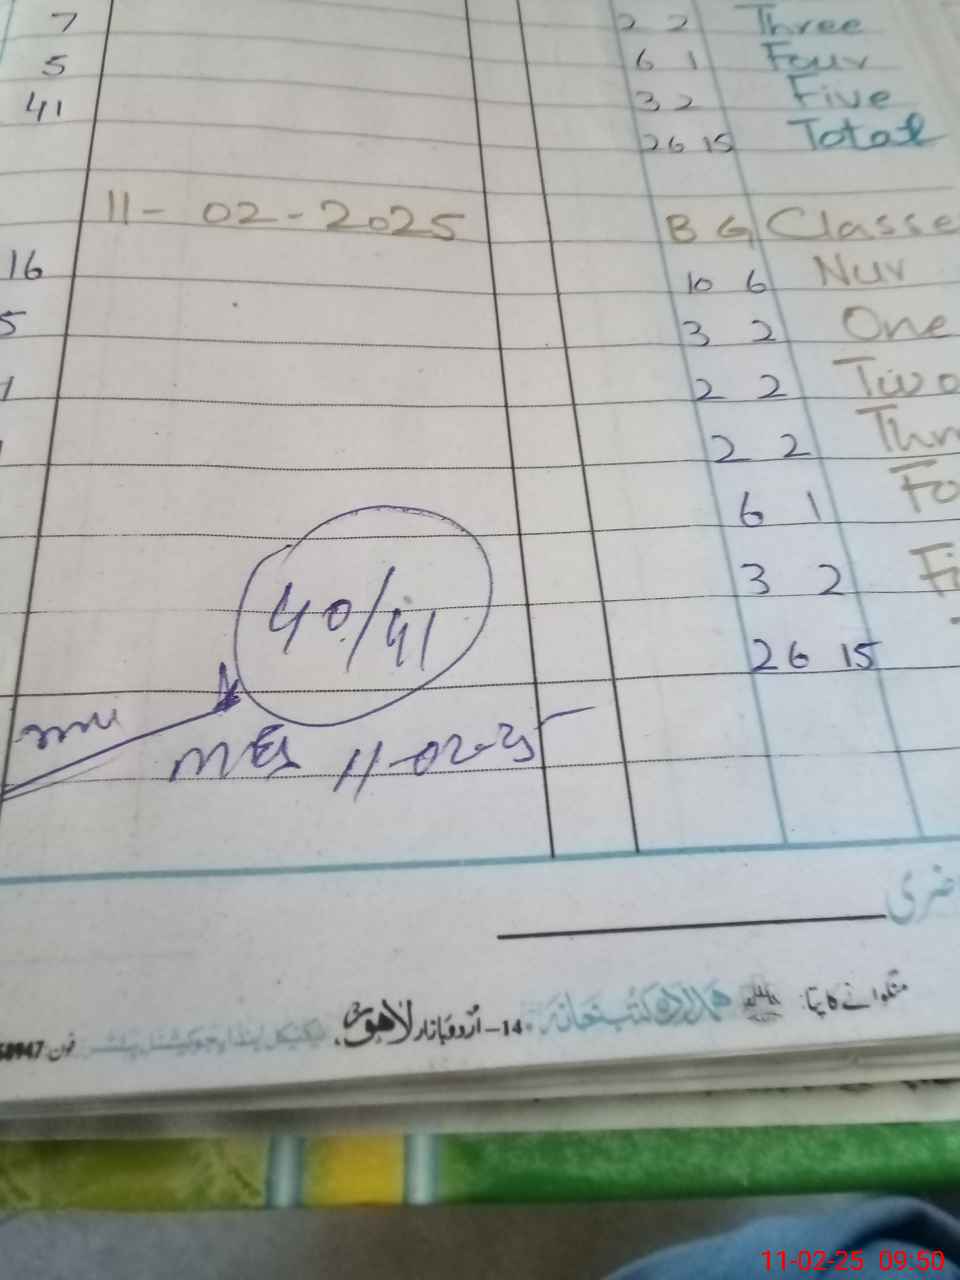 7 2 2 Three
5 6 1 Four
41 3 2 Five
26 15 Total
11-02-2025 B G Classe
16 10 6 Nur
5 3 2 One
2 2 Two
2 2 Thr
6 1 Fo
3 2 Fi
26 15
40/41
11-02-25
ضری
منگوانے کا پتا: ہمدرد کتب خانہ 14-اردو بازار لاہور
فون
11-02-25 09:50